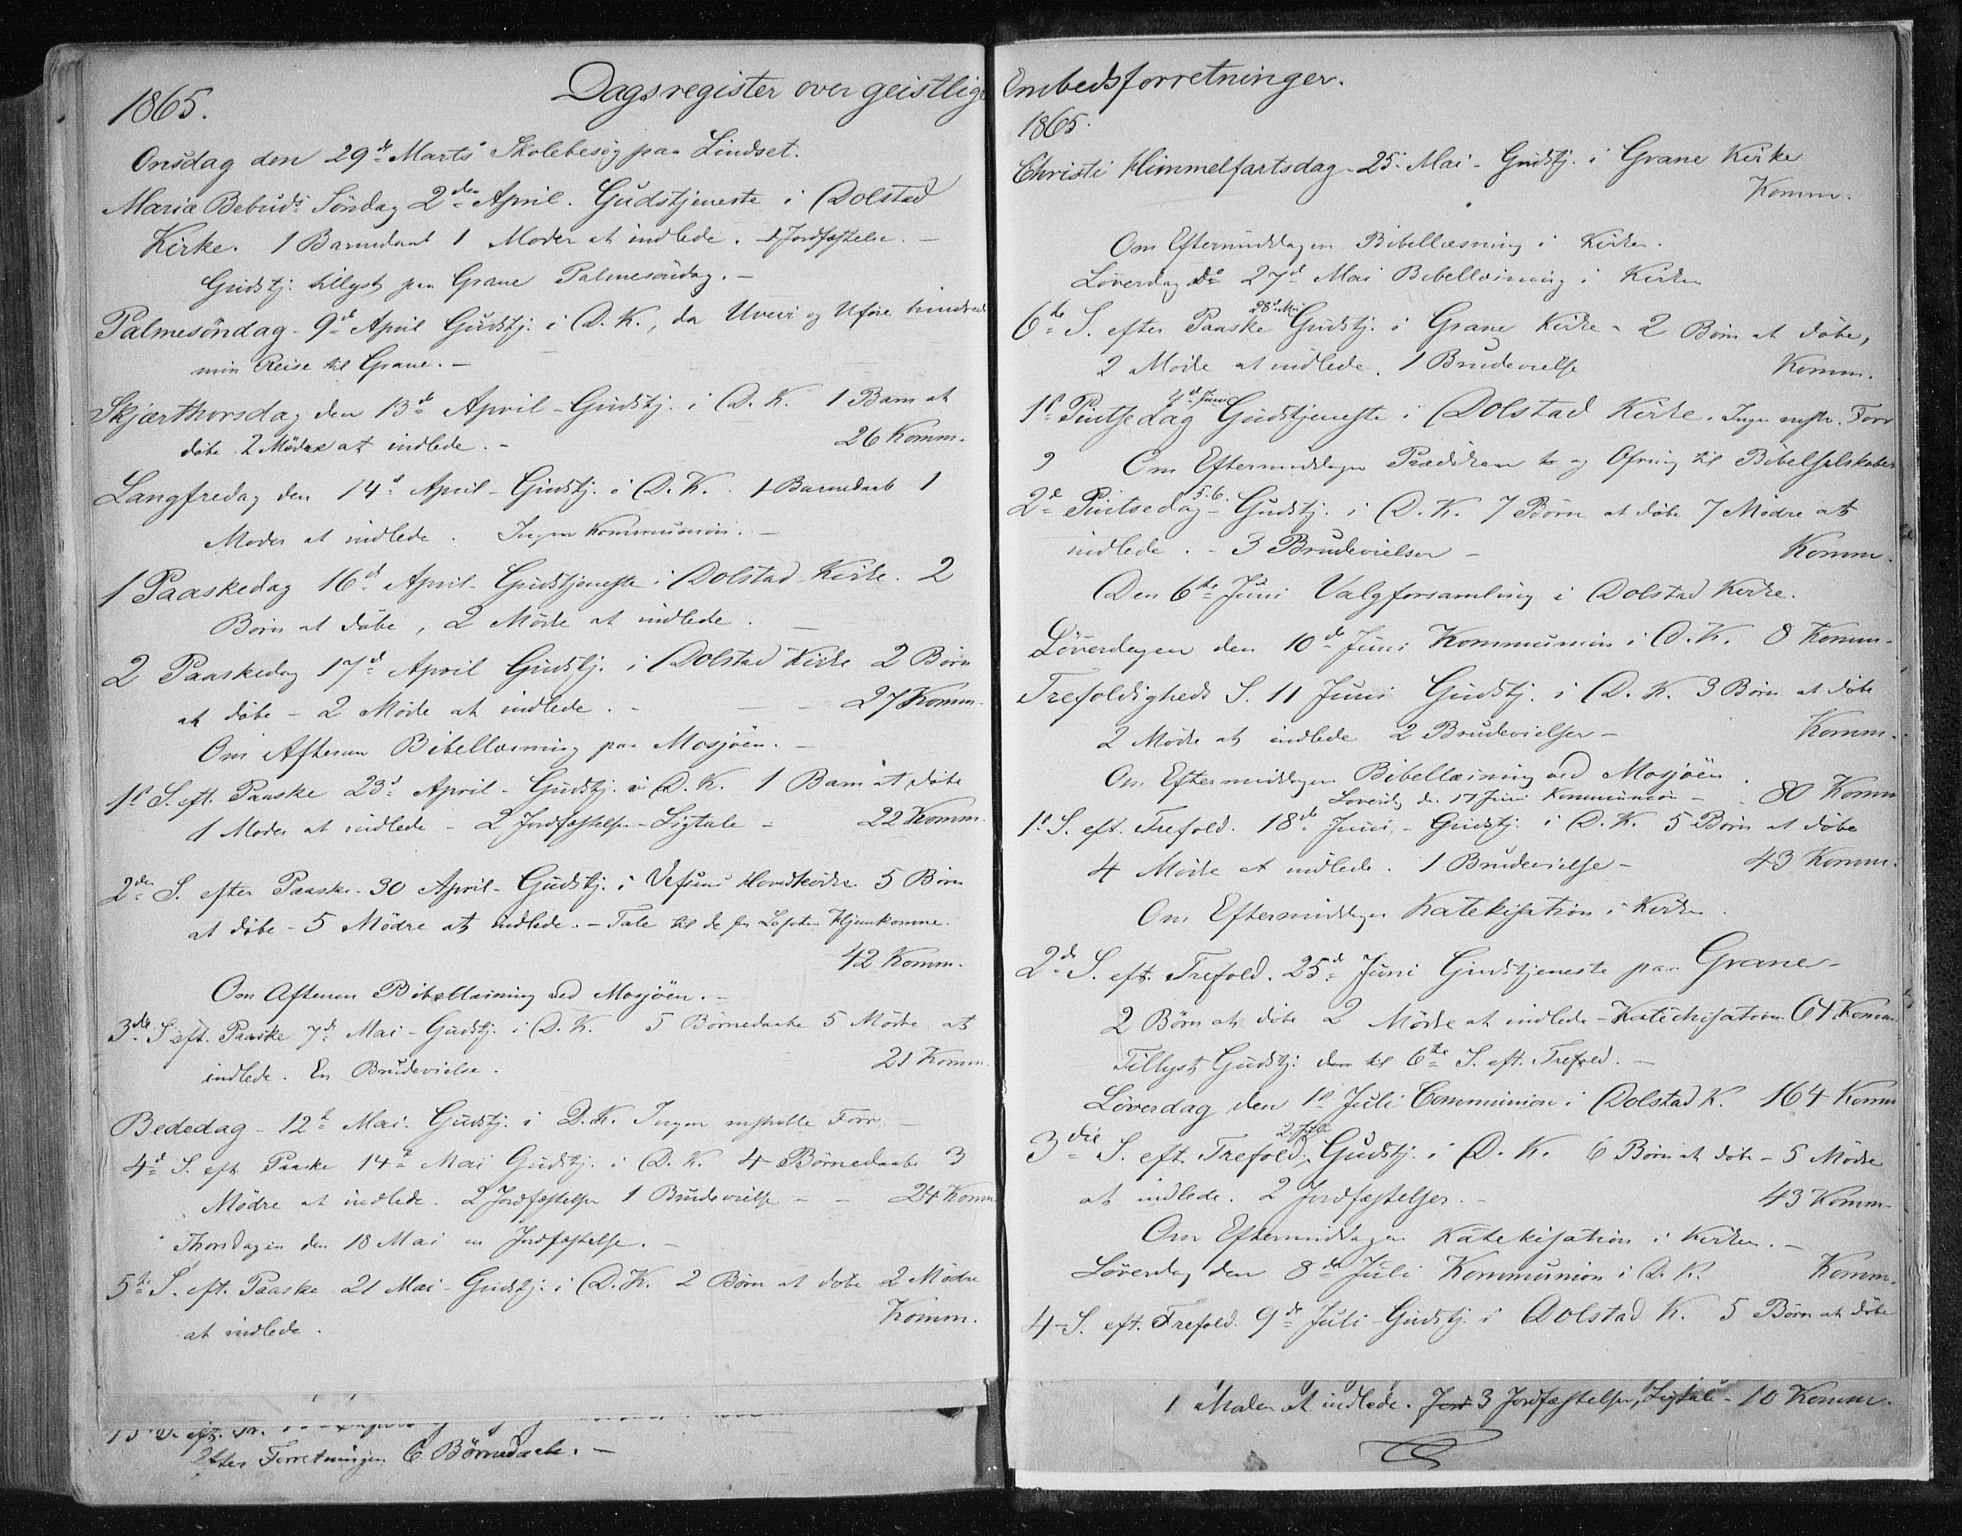 Dagsregister over geistlige Embedsforretninger.
1865.
Onsdag den 29de Marts Skolebesøg paa Lindset.
Mariæ Bebuds Søndag 2den April. Gudstjeneste i Dolstad
Kirke. 1 Barnedaab 1 Moder at indlede. 1 Jordfæstelse. –
Gudstj. tillyst paa Grane Palmesøndag. –
Palmesøndag - 9de April Gudstj. i D. K., da Uveir og Uføre hindrede
min Reise til Grane. –
Skjærthorsdag den 13de April - Gudstj. i D. K. 1 Barn at
døbe 2 Mødre at indlede. – 26 Komm.
Langfredag den 14de April - Gudstj. i D. K. 1 Barnedaab 1
Moder at indlede. Ingen Kommunion. –
1 Paaskedag 16de April - Gudstjeneste i Dolstad Kirke. 2
Børn at døbe, 2 Mødre at indlede. –
2 Paaskedag 17de April Gudstj. i Dolstad Kirke 2 Børn
at døbe - 2 Mødre at indlede. – 27 Komm.
Om Aftenen Bibellæsning paa Mosjøen. –
1st S. eft. Paaske 23de April - Gudstj. i D. K. 1 Barn at døbe
1 Moder at indlede - 2 Jordfæstelser - Ligtale – 22 Komm.
2den S. efter Paaske - 30 April - Gudstj. i Vefsens Hovedkirke 5 Børn
at døbe - 5 Mødre at indlede. - Tale til de fra Lofoten Hjemkomne.
42 Komm.
Om Aftenen Bibellæsning ved Mosjøen. –
3die S. eft. Paaske 7de Mai - Gudstj. i D. K. 5 Børnedaabe 5 Mødre at
indlede. En Brudevielse. 21 Komm.
Bededag - 12te Mai. Gudstj. i D. K. Ingen Forr. –
4de S. eft Paaske 14de Mai Gudstj. i D. K. 4 Børnedaabe 3
Mødre at indlede. 2 Jordfæstelser 1 Brudevielse – – 24 Komm
Thorsdagen den 18 Mai en Jordfæstelse. –
5te S. eft. Paaske 21 Mai - Gudstj. i D. K. 2 Børn at døbe 2 Mødre
at indlede. Komm.
efter Forretningen 6 Børnedaabe. –
1865.
Christi Himmelfartsdag - 25. Mai - Gudstj. i Grane Kirke
Komm.
Om Eftermiddagen Bibellæsning i Kirken.
Løverdag 27de Mai Bibellæsning i Kirken
28de Mai
6te S. efter Paaske Gudstj. i Grane Kirke - 2 Børn at døbe,
2 Mødre at indlede. 1 Brudevielse Komm.
4de Juni
1st Pintsedag Gudstjeneste i Dolstad Kirke. Ingen Forr
Om Eftermiddagen Prædiken og Ofring til Bibelselskabet
5.6.
2de Pintsedag - Gudstj. i D. K. 7 Børn at døbe 7 Mødre at
indlede. - 3 Brudevielser – Komm.
Den 6te Juni Valgforsamling i Dolstad Kirke.
Løverdagen den 10de Juni Kommunion i D. K. 8 Komm.
Trefoldigheds S. 11 Juni Gudstj. i D. K. 3 Børn at døbe
2 Mødre at indlede 2 Brudevielser – Komm.
Om Eftermiddagen Bibellæsning ved Mosjøen.
Løverdg den 17 Juni Kommunion – 80 Komm
1st S. eft. Trefold. 18de Juni - Gudstj. i D. K. 5 Børn at døbe
4 Mødre at indlede. 1 Brudevielse – 43 Komm.
Om Eftermiddagen Katekisation i Kirken.
2de S. eft. Trefold. 25de Juni Gudstjeneste paa Grane –
2 Børn at døbe 2 Mødre at indlede - Katechisation 64 Komm
Tillyst Gudstj. til 6te S. eft. Trefold. –
Løverdag den 1e Juli Communion i Dolstad K. 164 Komm
2. Juli
3die S. eft. Trefold. Gudstj. i D. K. 6 Børn at døbe - 5 Mødre
at indlede. 2 Jordfæstelser. – 43 Komm.
Om Eftermiddagen Katekisation i Kirken. –
Løverdag den 8de Juli Kommunion i D. K. Komm.
4 S. eft. Trefold. 9de Juli - Gudstj. i Dolstad K. 5 Børn at døbe
1 Moder at indlede. 3 Jordfæstelser, Ligtale - 10 Komm.